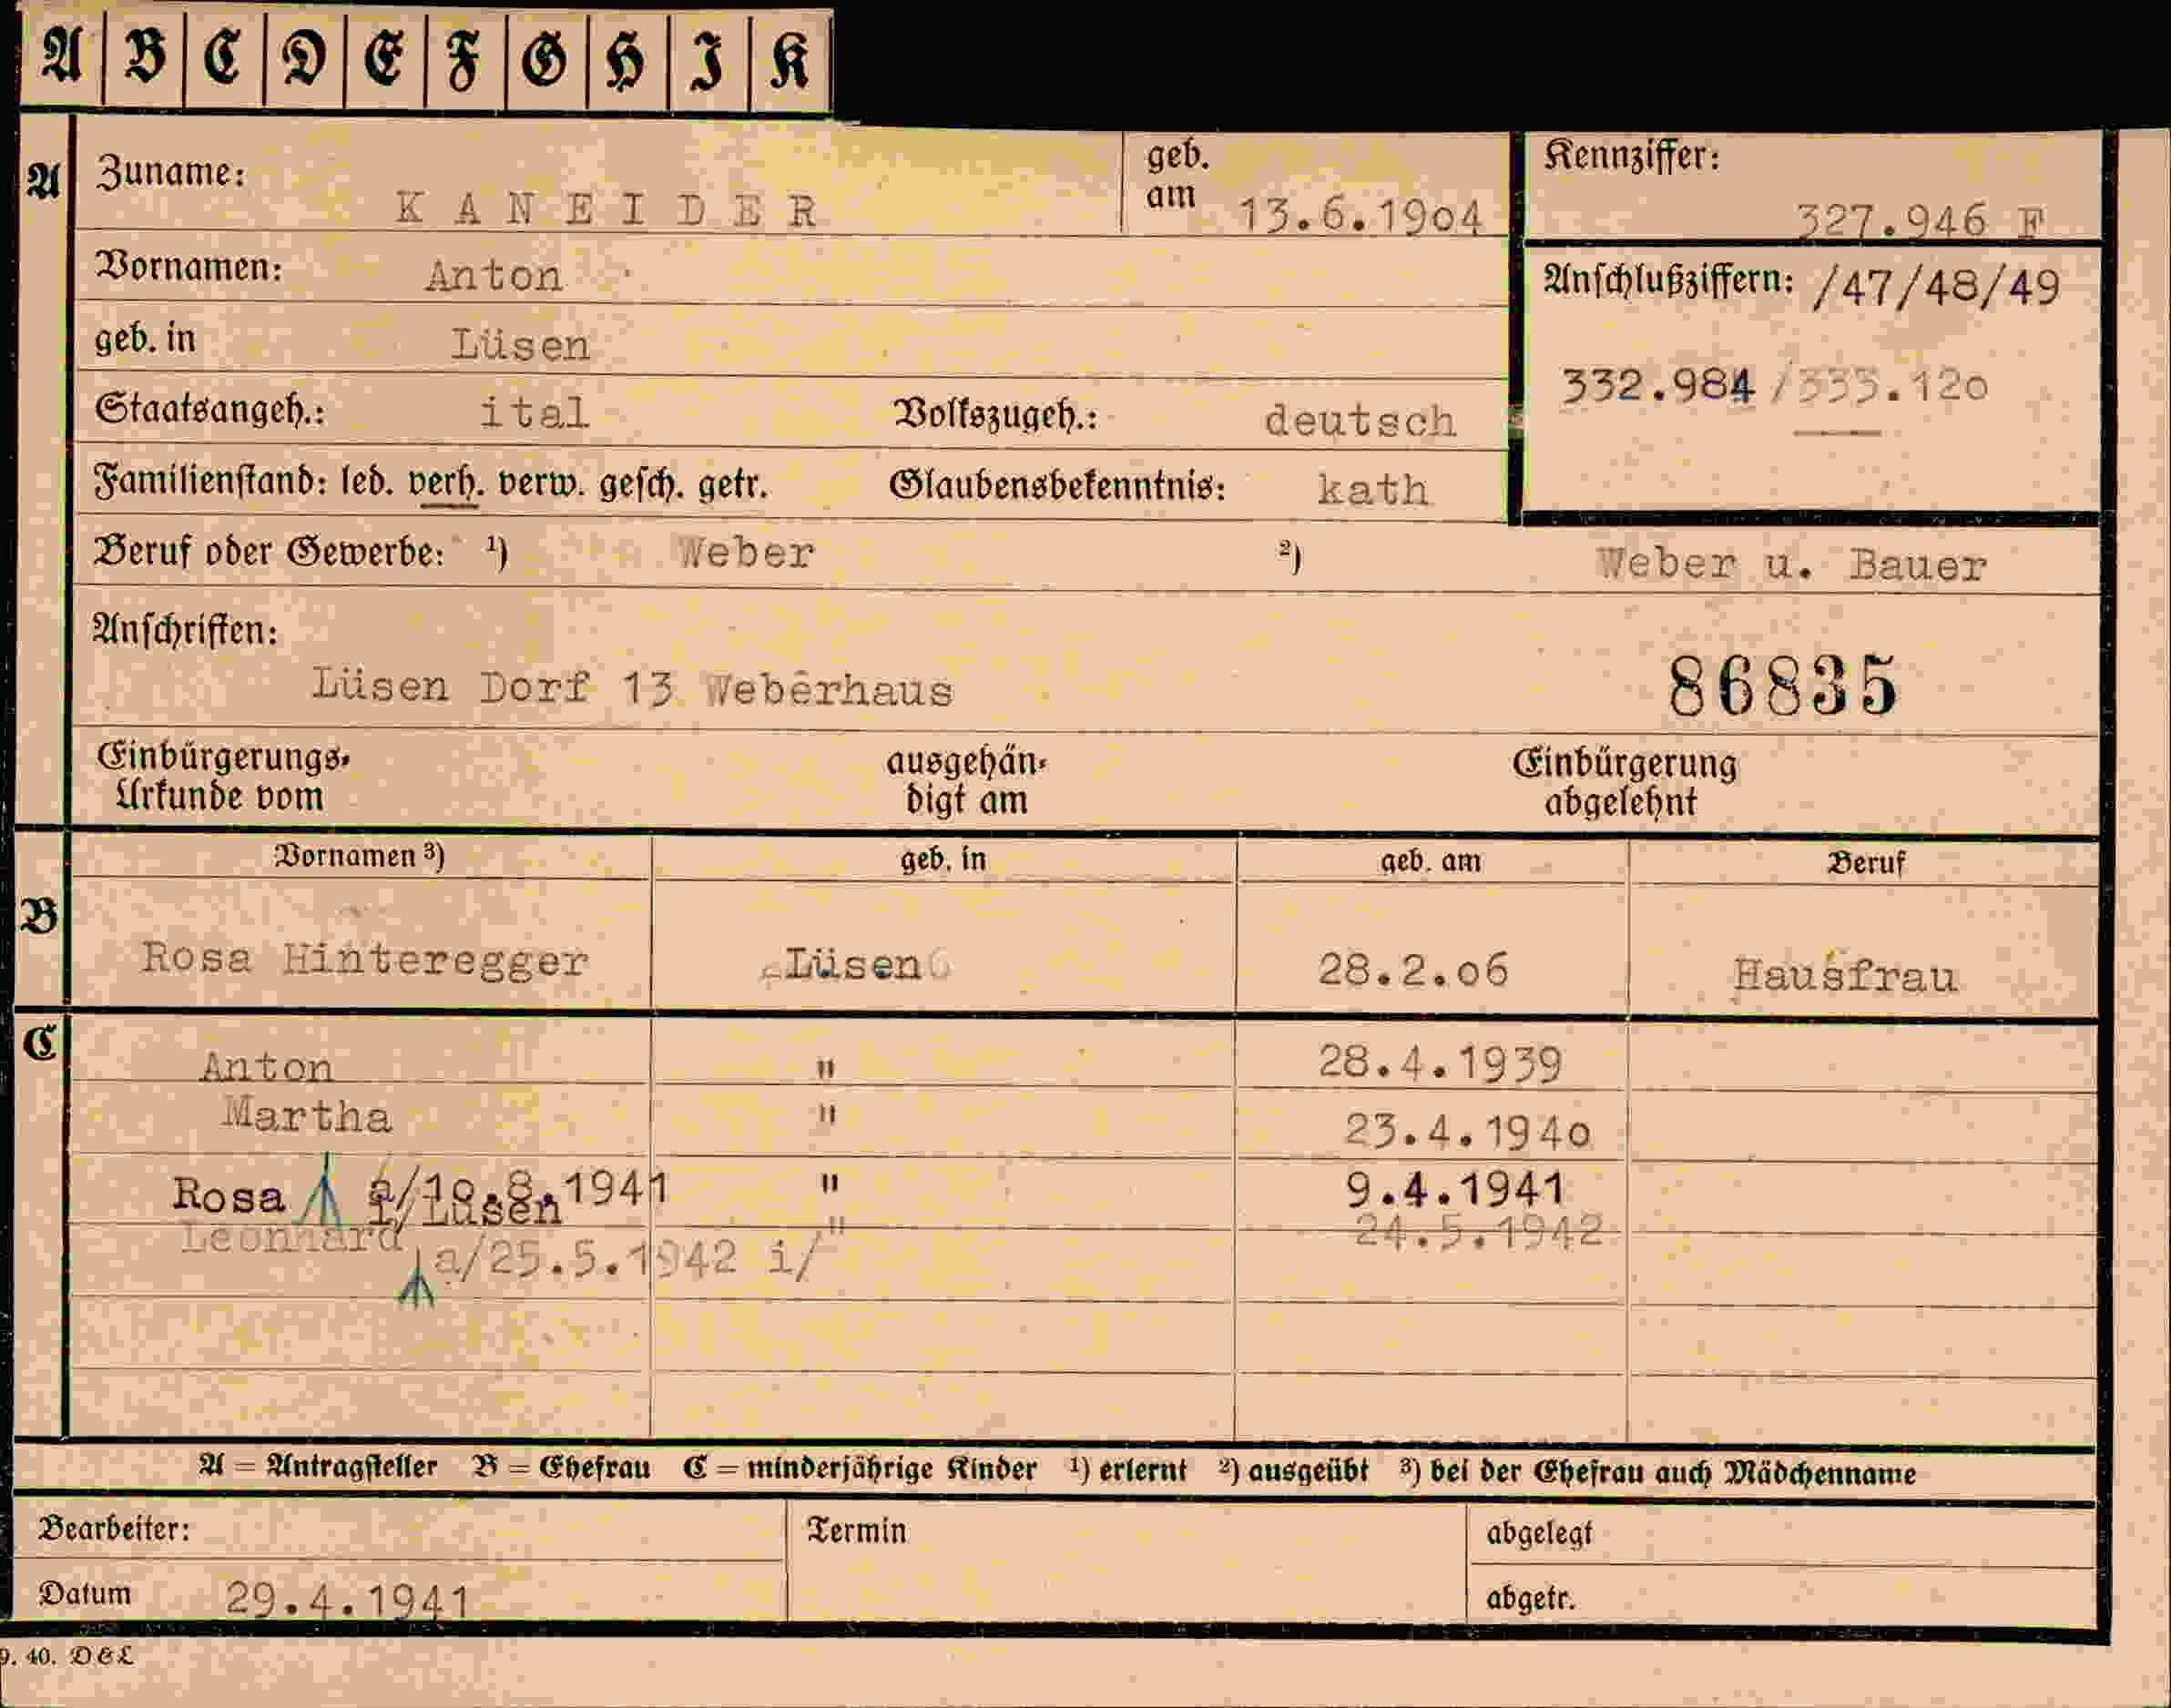 A B C D E F G H I K
A Zuname: KANEIDER geb. am 13.6.1904 Kennziffer: 327.946 F
Vornamen: Anton Anschlußziffern: /47/48/49
geb. in Lüsen
332.984/333.120
Staatsangeh.: ital Volkszugeh.: deutsch
Familienstand: led. verh. verw. gesch. getr. Glaubensbekenntnis: kath
Beruf oder Gewerbe: ¹) Weber ²) Weber u. Bauer
Anschriften:
Lüsen Dorf 13 Weberhaus 86835
Einbürgerungs- ausgehän- Einbürgerung
Urkunde vom digt am abgelehnt
Vornamen ³) geb. in geb. am Beruf
B Rosa Hinteregger Lüsen 28.2.06 Hausfrau
C Anton " 28.4.1939
Martha " 23.4.1940
Rosa a/10.8.1941 " 9.4.1941
i/Lüsen
Leonhard " 24.5.1942
a/25.5.1942 i/
A = Antragsteller B = Ehefrau C = minderjährige Kinder ¹) erlernt ²) ausgeübt ³) bei der Ehefrau auch Mädchenname
Bearbeiter: Termin abgelegt
Datum 29.4.1941 abgetr.
9. 40. D & L